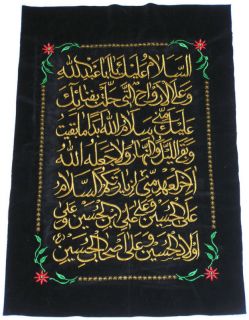 السلام عليك يا اباعبدالله
وعلى الارواح التي حلت بفنائك
عليك مني سلام الله ابدا ما بقيت
وبقي الليل والنهار ولا جعله الله
اخر العهد مني لزيارتكم السلام
على الحسين وعلى علي بن الحسين وعلى
اولاد الحسين وعلى اصحاب الحسين